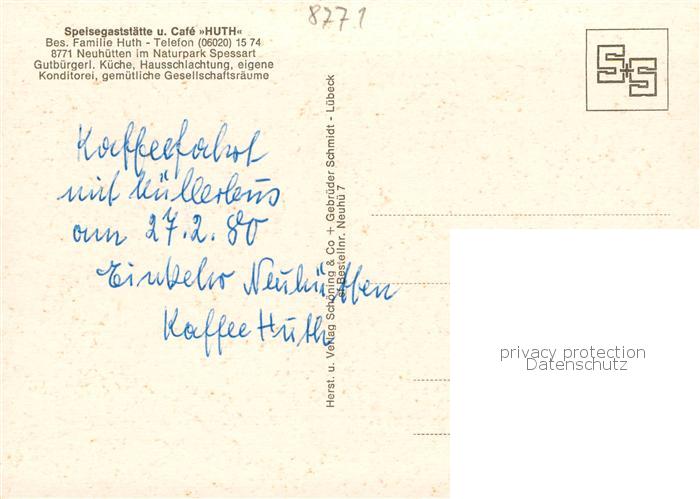 8771
Speisegaststätte u. Café »HUTH«
Bes. Familie Huth - Telefon (06020) 15 74
8771 Neuhütten im Naturpark Spessart
Gutbürgerl. Küche, Hausschlachtung, eigene
Konditorei, gemütliche Gesellschaftsräume
S+S
Kaffeefahrt
mit Müllerbus
am 27.2.80
Einkehr Neuhütten
Kaffee Huth
Herst. u. Verlag Schöning & Co + Gebrüder Schmidt - Lübeck
Bestellnr. Neuhü 7
privacy protection
Datenschutz